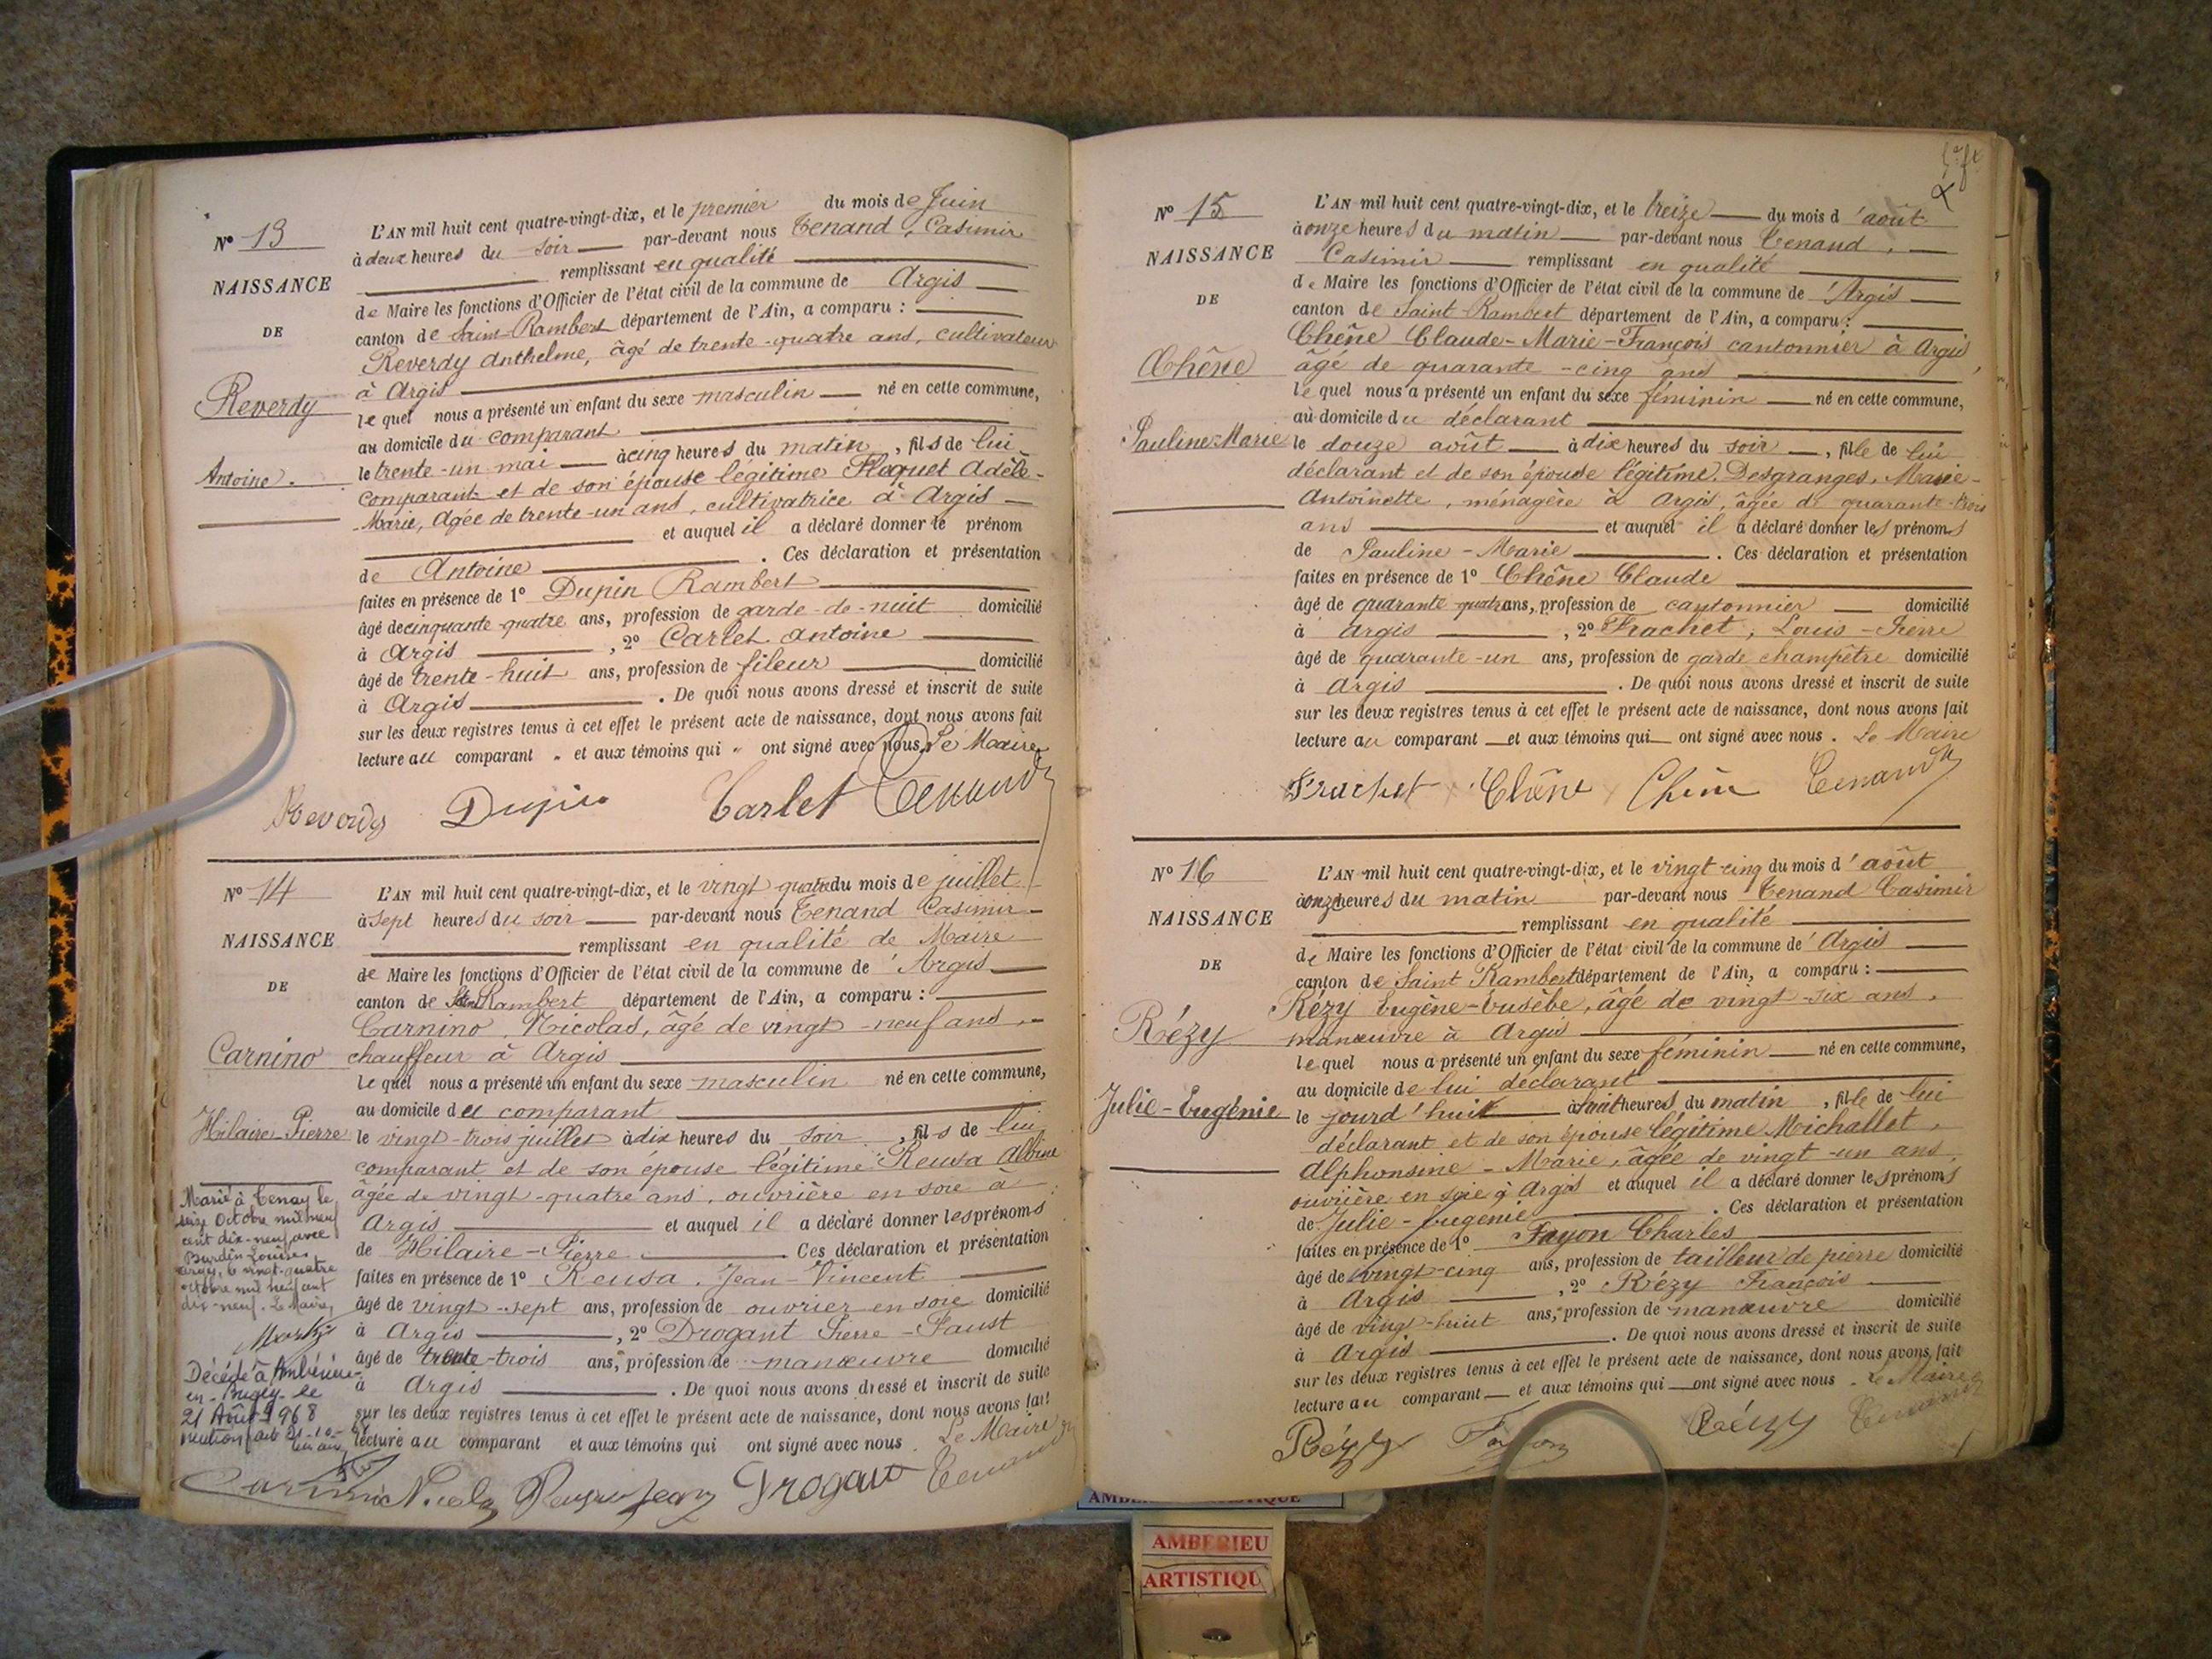 N° 13
NAISSANCE
DE
Reverdy
Antoine.
L'AN mil huit cent quatre-vingt-dix, et le premier du mois de Juin
à deux heures du soir par-devant nous Tenand, Casimir
remplissant en qualité
de Maire les fonctions d'Officier de l'état civil de la commune de Argis
canton de Saint-Rambert département de l'Ain, a comparu :
Reverdy Anthelme, âgé de trente-quatre ans, cultivateur
à Argis
le quel nous a présenté un enfant du sexe masculin né en cette commune,
au domicile du comparant
le trente-un mai à cinq heures du matin, fils de lui
comparant et de son épouse légitime Floquet Adèle-
Marie, âgée de trente-un ans, cultivatrice à Argis
et auquel il a déclaré donner le prénom
de Antoine . Ces déclaration et présentation
faites en présence de 1° Dupin Rambert
âgé de cinquante-quatre ans, profession de garde-de-nuit domicilié
à Argis , 2° Carlet Antoine
âgé de trente-huit ans, profession de fileur domicilié
à Argis . De quoi nous avons dressé et inscrit de suite
sur les deux registres tenus à cet effet le présent acte de naissance, dont nous avons fait
lecture au comparant " et aux témoins qui " ont signé avec nous. Le Maire
Reverdy Dupin Carlet Tenand
N° 14
NAISSANCE
DE
Carnino
Hilaire-Pierre
L'AN mil huit cent quatre-vingt-dix, et le vingt quatre du mois de juillet
à sept heures du soir par-devant nous Tenand Casimir
remplissant en qualité de Maire
de Maire les fonctions d'Officier de l'état civil de la commune de 'Argis
canton de St Rambert département de l'Ain, a comparu :
Carnino, Nicolas, âgé de vingt-neuf ans,
chauffeur à Argis
le quel nous a présenté un enfant du sexe masculin né en cette commune,
au domicile du comparant
le vingt-trois juillet à dix heures du soir, fils de lui
comparant et de son épouse légitime Reusa Albine
âgée de vingt-quatre ans, ouvrière en soie à
Argis et auquel il a déclaré donner les prénoms
de Hilaire-Pierre . Ces déclaration et présentation
faites en présence de 1° Reusa, Jean-Vincent
âgé de vingt-sept ans, profession de ouvrier en soie domicilié
à Argis , 2° Drogant Pierre-Faust
âgé de trente-trois ans, profession de manœuvre domicilié
à Argis . De quoi nous avons dressé et inscrit de suite
sur les deux registres tenus à cet effet le présent acte de naissance, dont nous avons fait
lecture au comparant et aux témoins qui ont signé avec nous. Le Maire
Marié à Tenay le
seize Octobre mil neuf
cent dix-neuf avec
Burdin Louise.
Argis, le vingt-quatre
octobre mil neuf cent
dix-neuf. Le Maire,
Décédé à Ambérieu-
en-Bugey le
21 Août 1968
mention faite
Carnino Nicolas Jean Drogant Tenand
N° 15
NAISSANCE
DE
Chêne
Pauline-Marie
L'AN mil huit cent quatre-vingt-dix, et le treize du mois d'août
à onze heures du matin par-devant nous Tenand,
Casimir remplissant en qualité
de Maire les fonctions d'Officier de l'état civil de la commune de 'Argis
canton de Saint Rambert département de l'Ain, a comparu :
Chêne Claude-Marie-François cantonnier à Argis,
âgé de quarante-cinq ans
le quel nous a présenté un enfant du sexe féminin né en cette commune,
au domicile du déclarant
le douze août à dix heures du soir, fille de lui
déclarant et de son épouse légitime Desgranges, Marie-
Antoinette, ménagère à Argis, âgée de quarante-trois
ans et auquel il a déclaré donner les prénoms
de Pauline-Marie . Ces déclaration et présentation
faites en présence de 1° Chêne Claude
âgé de quarante-quatre ans, profession de cantonnier domicilié
à Argis , 2° Frachet, Louis-Pierre
âgé de quarante-un ans, profession de garde champêtre domicilié
à Argis . De quoi nous avons dressé et inscrit de suite
sur les deux registres tenus à cet effet le présent acte de naissance, dont nous avons fait
lecture au comparant et aux témoins qui ont signé avec nous. Le Maire
Frachet Chêne Chêne Tenand
N° 16
NAISSANCE
DE
Rézy
Julie-Eugénie
L'AN mil huit cent quatre-vingt-dix, et le vingt-cinq du mois d'août
à onze heures du matin par-devant nous Tenand Casimir
remplissant en qualité
de Maire les fonctions d'Officier de l'état civil de la commune de 'Argis
canton de Saint Rambert département de l'Ain, a comparu :
Rézy Eugène-Eusèbe, âgé de vingt-six ans,
manœuvre à Argis
le quel nous a présenté un enfant du sexe féminin né en cette commune,
au domicile de lui déclarant
le jourd'hui à huit heures du matin, fille de lui
déclarant et de son épouse légitime Michallet,
Alphonsine-Marie, âgée de vingt-un ans,
ouvrière en soie à Argis et auquel il a déclaré donner les prénoms
de Julie-Eugénie . Ces déclaration et présentation
faites en présence de 1° Fayon Charles
âgé de vingt-cinq ans, profession de tailleur de pierre domicilié
à Argis , 2° Rézy François
âgé de vingt-huit ans, profession de manœuvre domicilié
à Argis . De quoi nous avons dressé et inscrit de suite
sur les deux registres tenus à cet effet le présent acte de naissance, dont nous avons fait
lecture au comparant et aux témoins qui ont signé avec nous. Le Maire
Rézy Fayon Rézy Tenand
AMBERIEU
ARTISTIQU